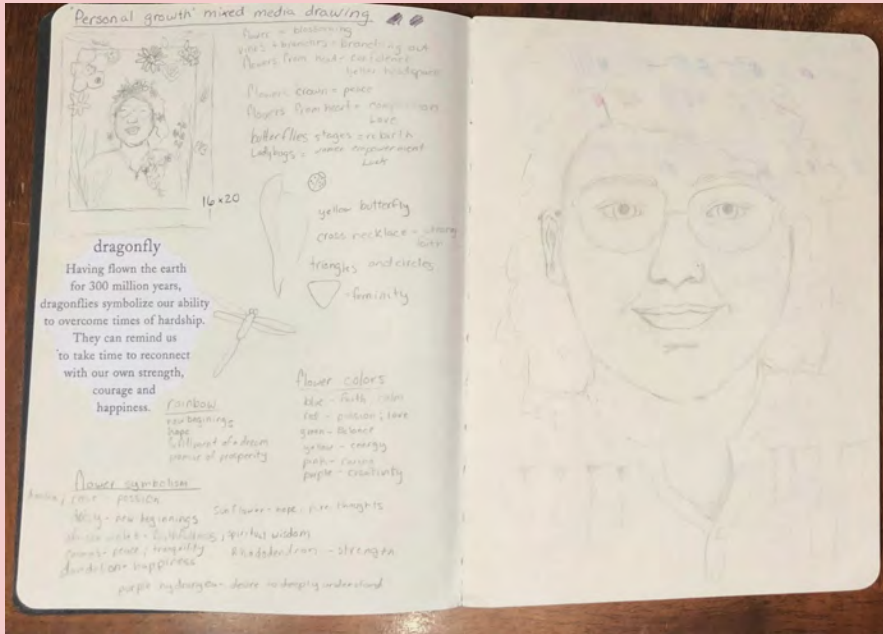 'Personal growth' mixed media drawing
flower = blossoming
vines + branches = branching out
flowers from head = confidence
better headspace
flowers crown = peace
flowers from heart =
Love
butterflies stages = rebirth
Ladybugs = women empowerment
Luck
16 x 20
yellow butterfly
cross necklace = strong
faith
triangles and circles
- feminity
dragonfly
Having flown the earth
for 300 million years,
dragonflies symbolize our ability
to overcome times of hardship.
They can remind us
to take time to reconnect
with our own strength,
courage and
happiness.
rainbow
new beginings
hope
fulfilment of a dream
promise of prosperity
flower colors
blue - faith, calm
red - passion, love
green - Balance
yellow - energy
pink -
purple - creativity
flower symbolism
rose - passion
daisy - new beginnings
Sunflower - hope, pure thoughts
african violet - faithfulness, spiritual wisdom
cosmos - peace, tranquility
Rhododendron - strength
dandelion - happiness
purple hydrangea - desire to deeply understand